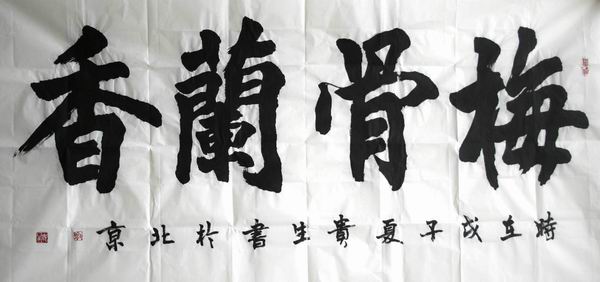 梅骨蘭香
時在戊子夏貴生書於北京